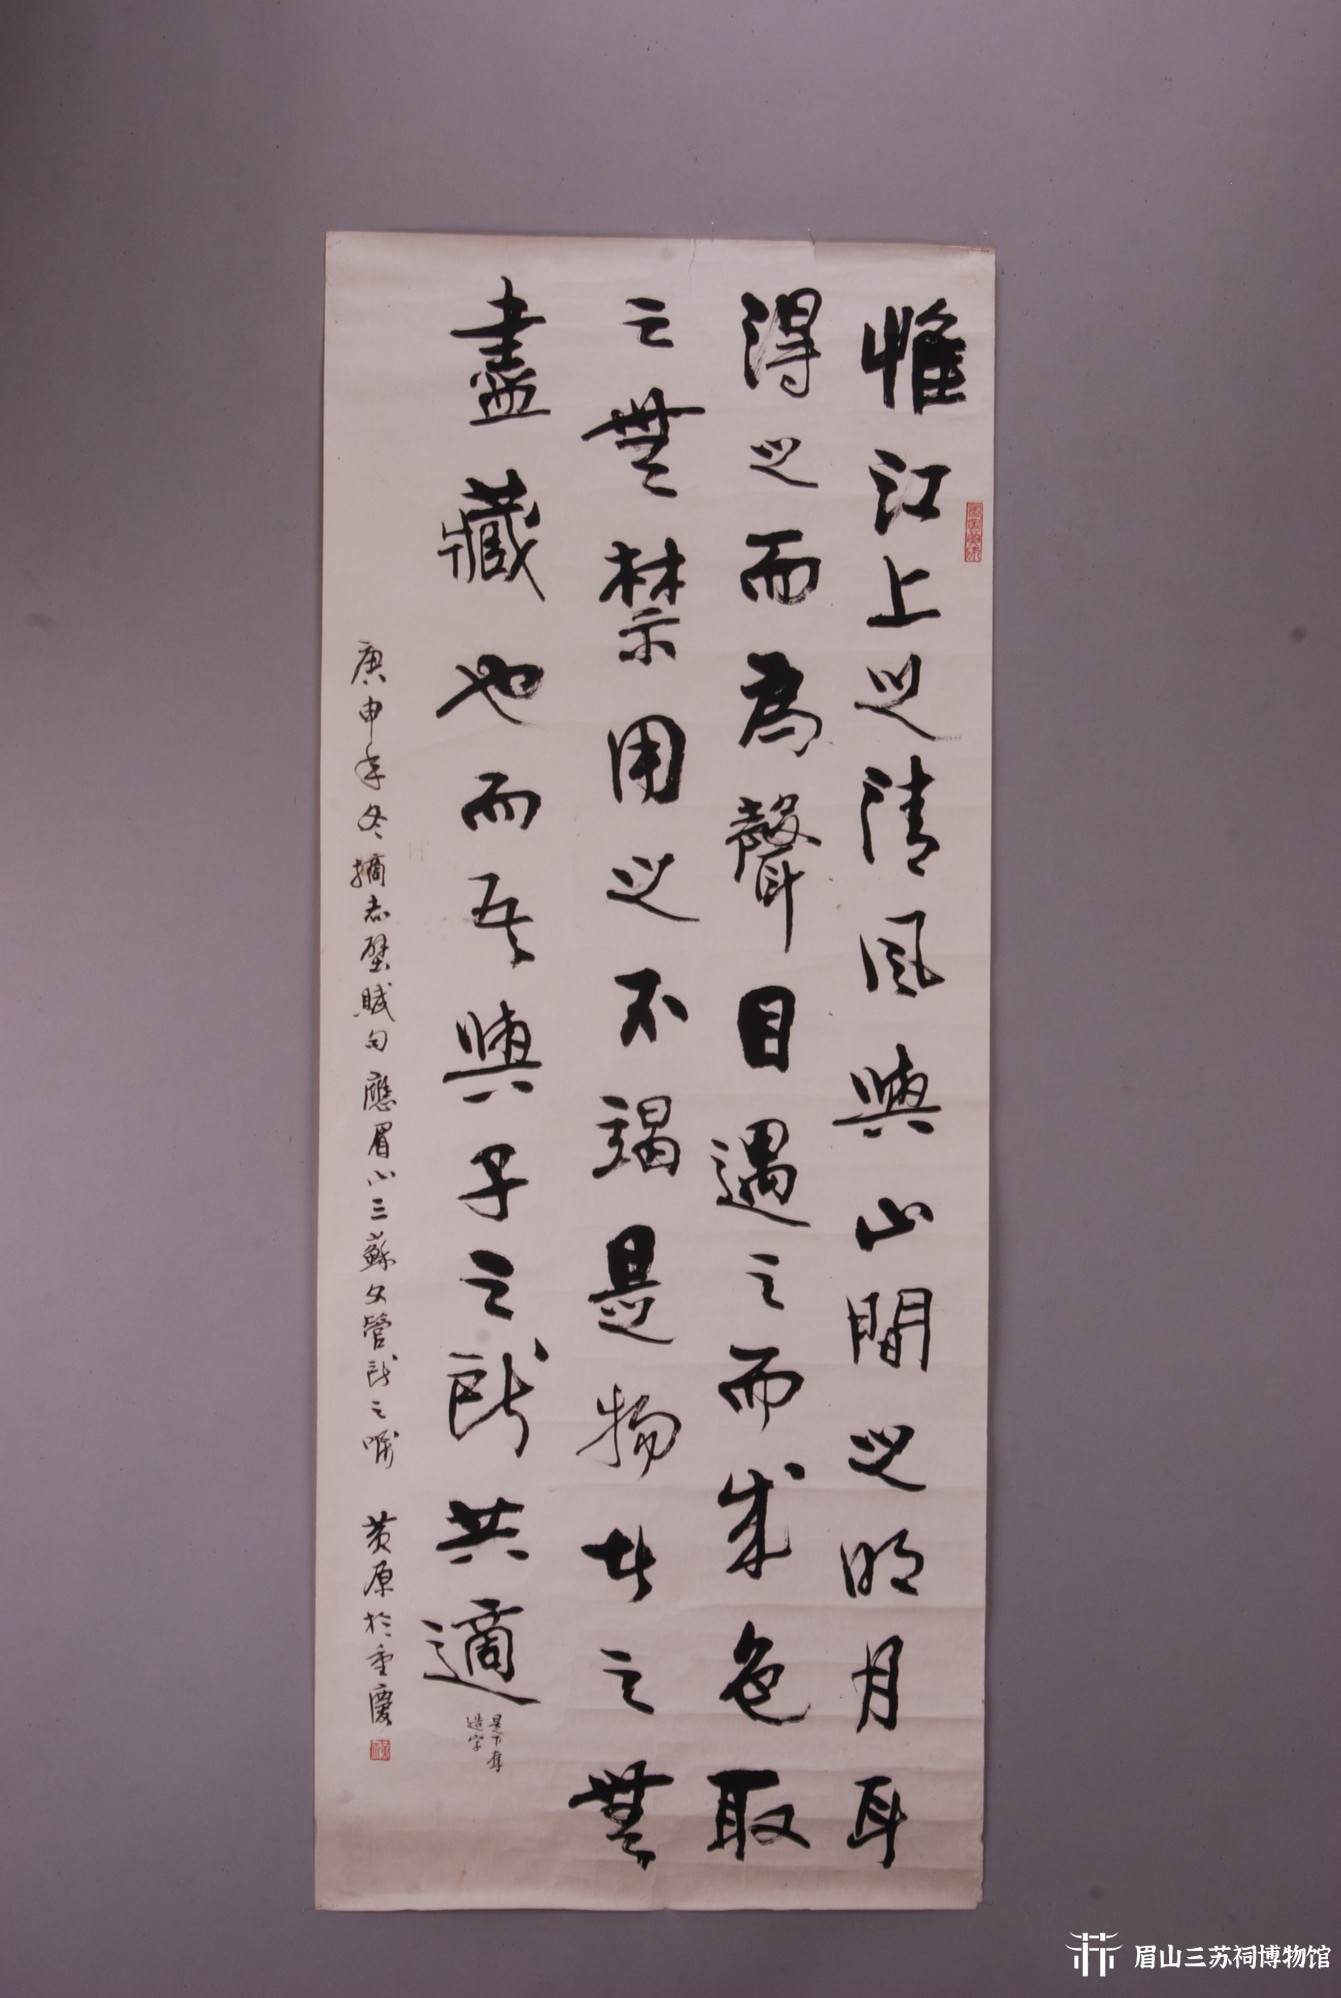 惟江上之清風與山間之明月耳
得之而為聲目遇之而成色取
之無禁用之不竭是物者之無
盡藏也而吾與子之所共適
是下奪
造字
庚申年冬摘赤壁賦句應眉山三蘇文管所之囑
黃原於重慶
眉山三苏祠博物馆